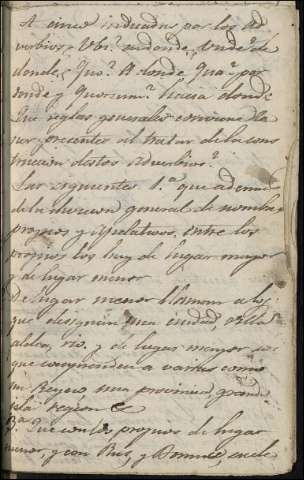 A cinco indicadas por los ad
verbios, Ubi? en donde, Unde? de
donde, Quo? A donde, Qua? por
donde y Quorsum? hácia donde.
Que reglas generales conviene te
ner presentes al tratar de la cons
truccion de estos adverbios?
Las siguientes 1.ª que ademas
de la division general de nombres
propios y apelativos, entre los
propios los hay de lugar mayor
y de lugar menor
De lugar menor llaman a los
que designan una ciudad, villa
aldea, rio, y de lugar mayor los
que comprenden a varios como
un Reyno una provincia, grande
isla region &
2.ª Que con los propios de lugar
menor, y con Rus, y Domus,